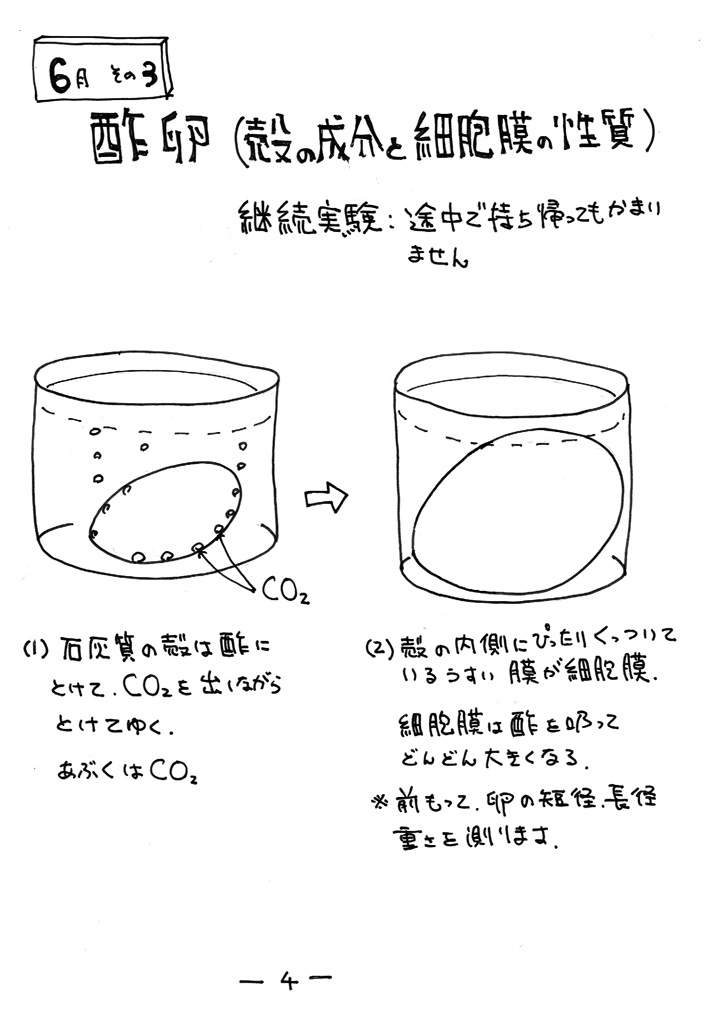 6月 その3
酢卵(殻の成分と細胞膜の性質)
継続実験:途中で持ち帰ってもかまい
ません
CO₂
(1) 石灰質の殻は酢に
とけて、CO₂を出しながら
とけてゆく.
あぶくはCO₂
(2) 殻の内側にぴったりくっついて
いるうすい膜が細胞膜.
細胞膜は酢を吸って
どんどん大きくなる.
※前もって、卵の短径、長径
重さを測ります.
— 4 —